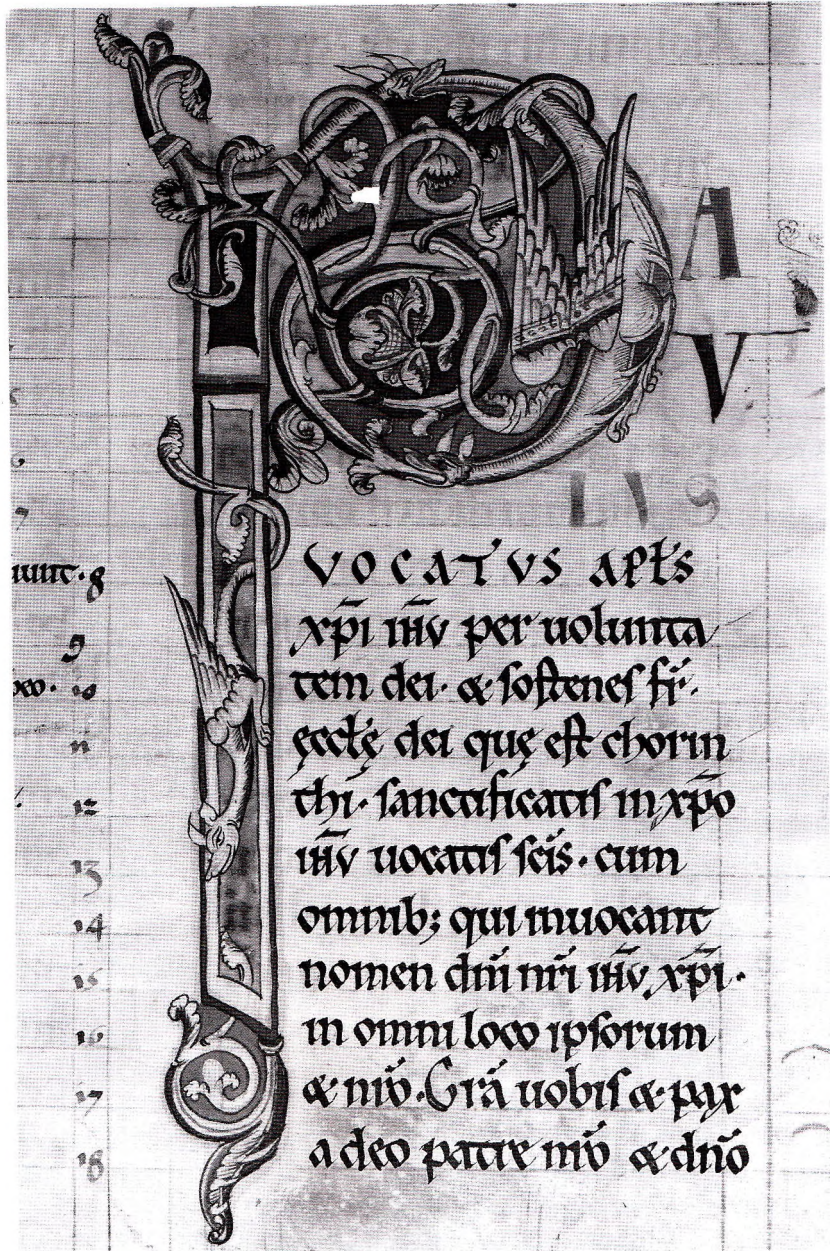 P
A
V
LVS
VOCATVS APŁS
xp̄i ih̄v per uolunta
tem dei· & soſtenes fr̄·
ęccłę dei quę eſt chorin
thi· sanctificatis in xp̄o
ih̄v uocatis sc̄is· cum
omnib; qui inuocant
nomen dn̄i nr̄i ih̄v xp̄i·
in omni loco ipsorum
& nr̄o· Grā uobis & pax
a deo patre nr̄o & dn̄o
7
8
9
10
11
12
13
14
15
16
17
18